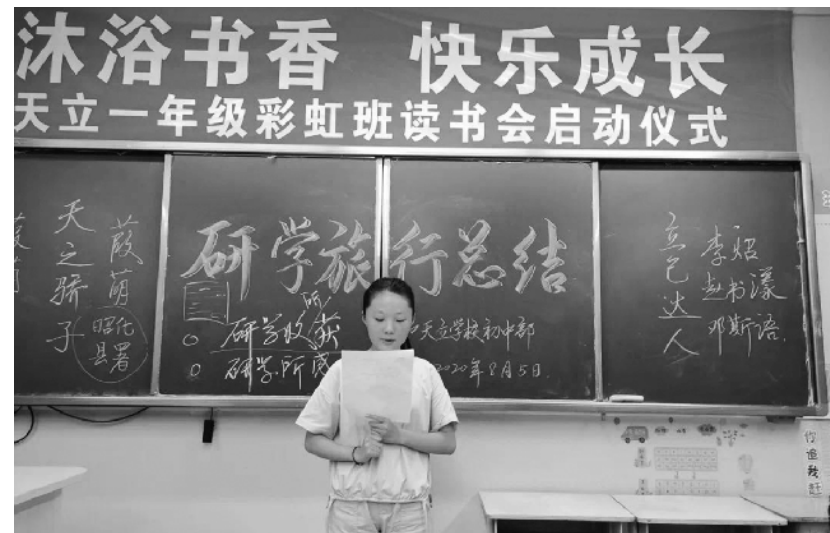 沐浴书香 快乐成长
天立一年级彩虹班读书会启动仪式
天之骄子
葭萌
昭化
县署
研学旅行总结
研学收获
研学所感
天立学校初中部
2020年8月5日
立己达人
李炤
赵书漾
邓斯语
你追我赶